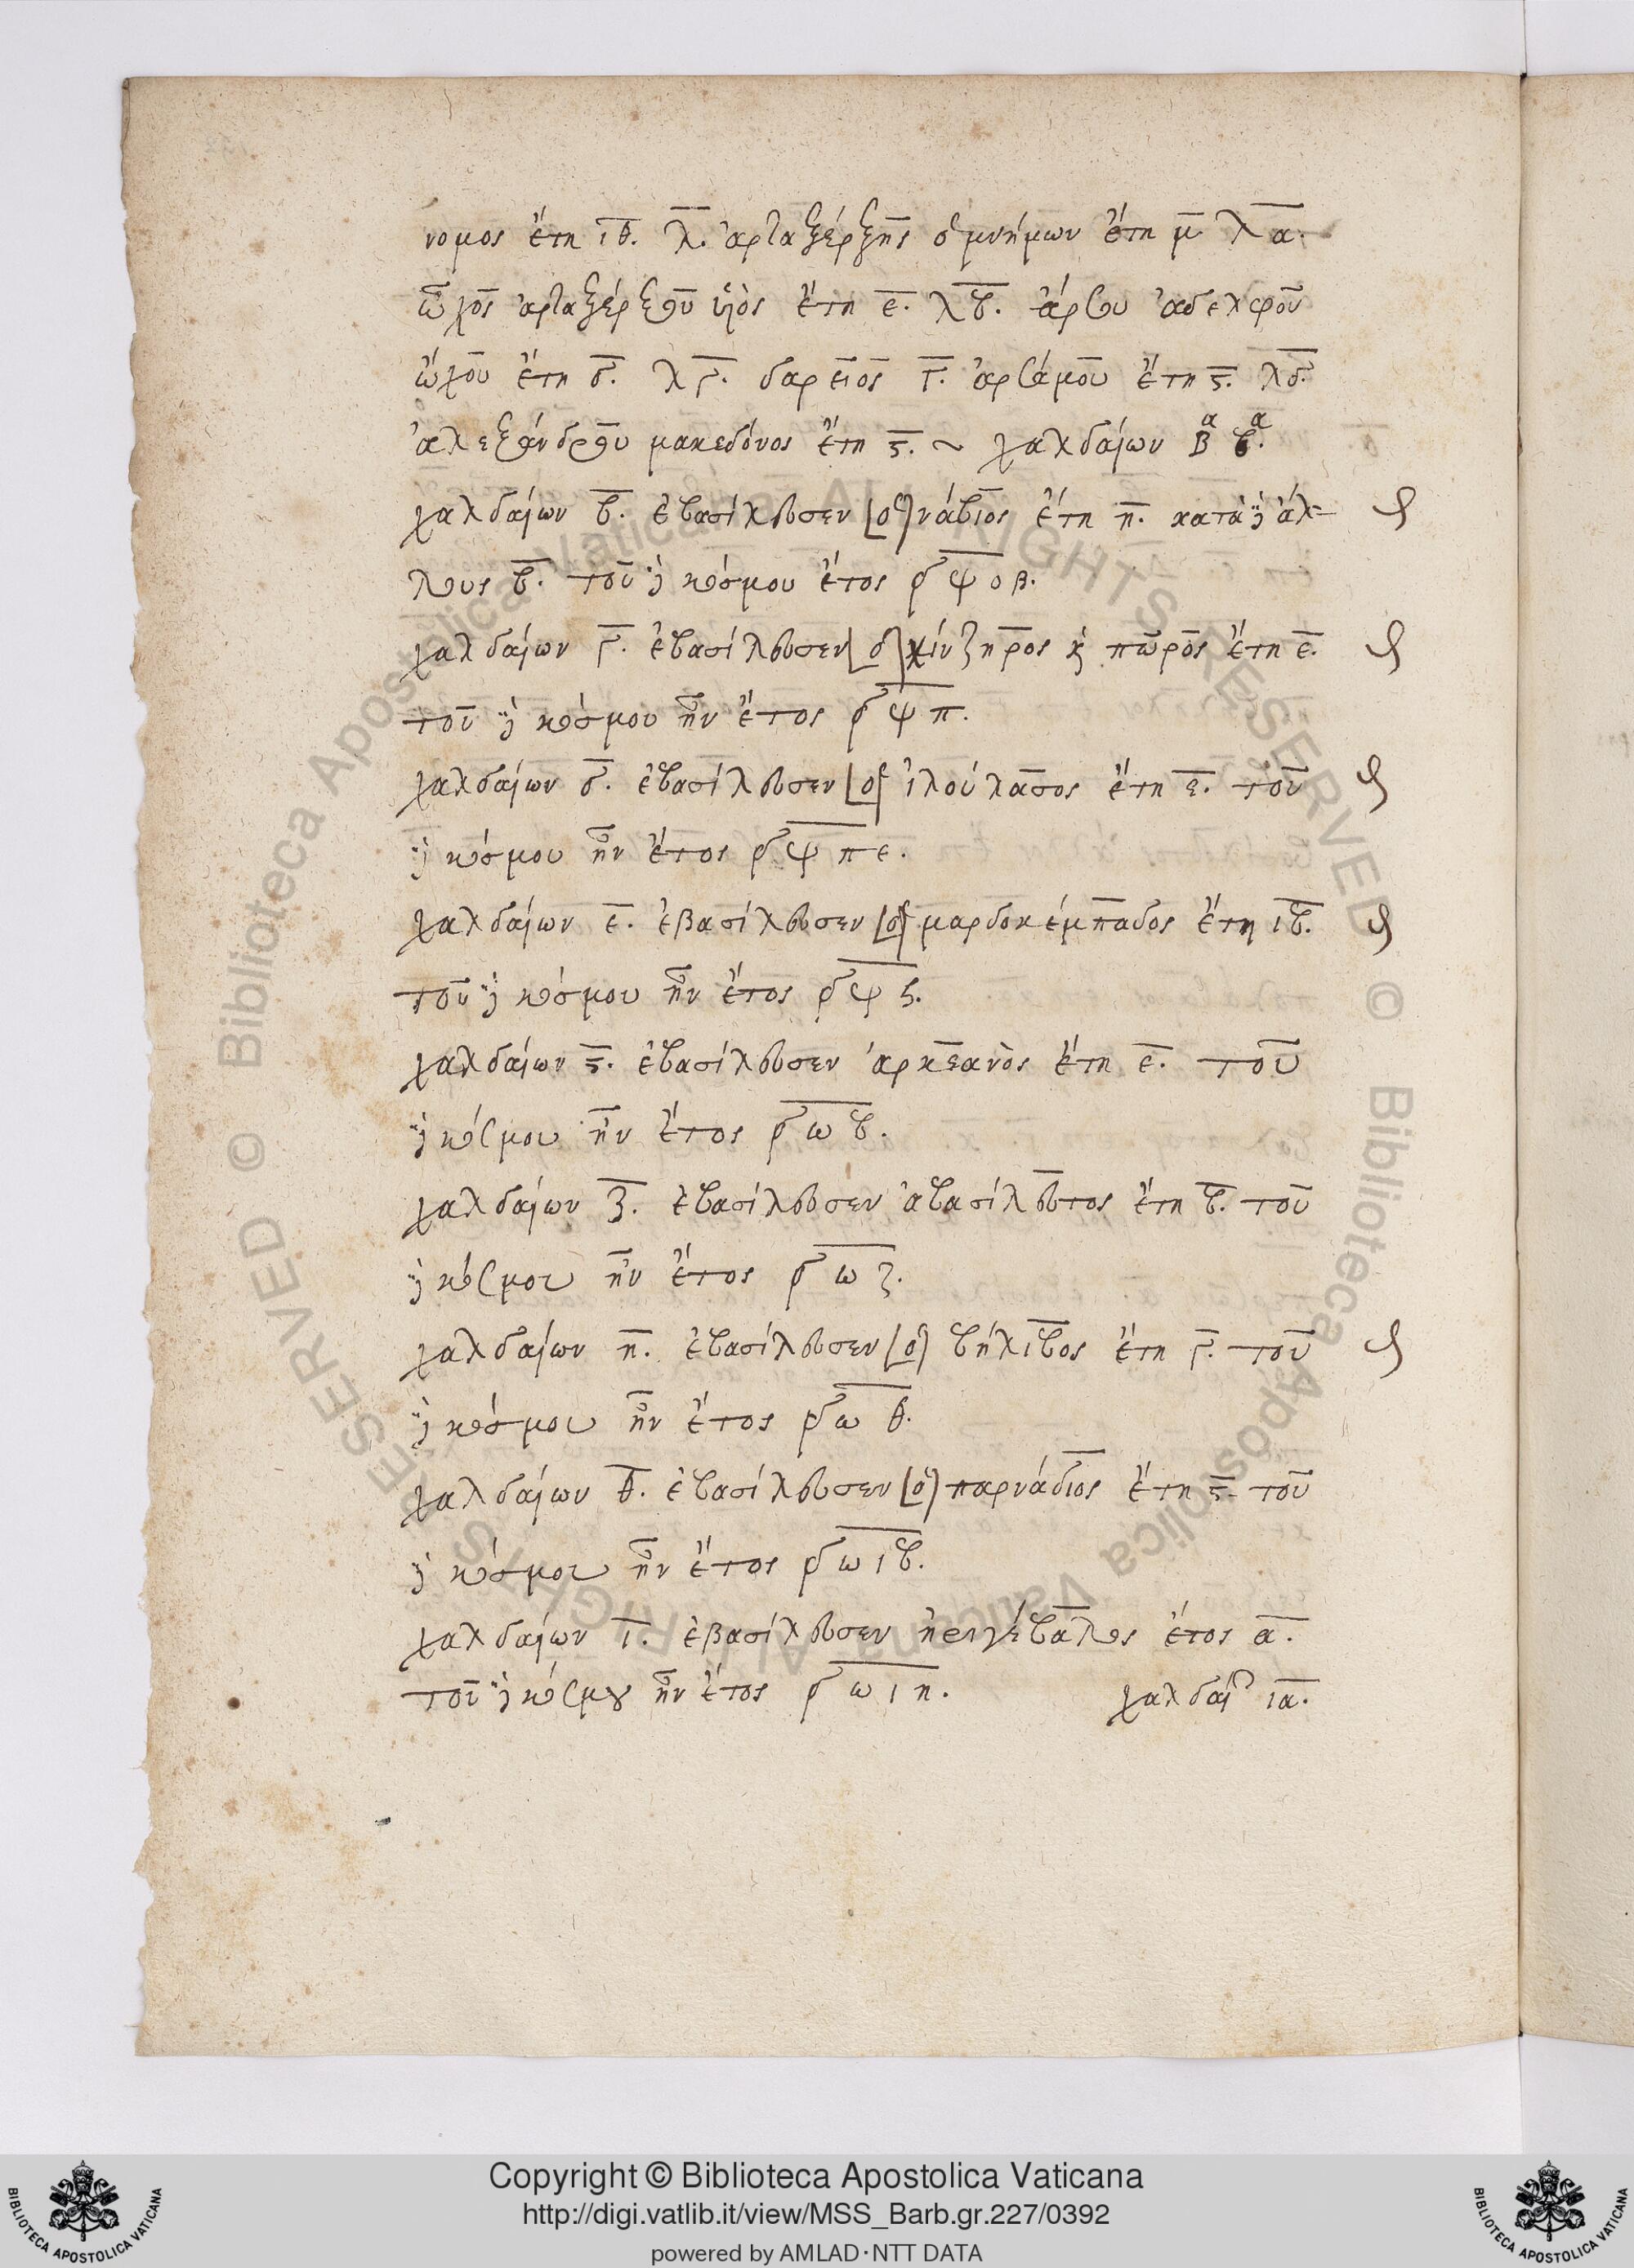 νομος ἔτη ιθ. λ. ἀρταξέρξης ὁ μνήμων ἔτη μ λα.
ὦχος ἀρταξέρξου υἱὸς ἔτη ε. λβ. ἀρσου ἀδελφοῦ
ὤχου ἔτη δ. λγ. δαρεῖος γ. ἀρσάμου ἔτη ς. λδ.
ἀλεξάνδρου μακεδόνος ἔτη ς. ~ χαλδαίων
χαλδαίων β. ἐβασίλευσεν [ὁ] νάβιος ἔτη η. κατὰ δὲ ἄλ-
λους β. τοῦ δὲ κόσμου ἔτος ͵εψοβ.
χαλδαίων γ. ἐβασίλευσεν [ὁ] χίνζηρος κ πῶρος ἔτη ε.
τοῦ δὲ κόσμου ἦν ἔτος ͵εψπ.
χαλδαίων δ. ἐβασίλευσεν [ὁ] ἰλούλασος ἔτη ε. τοῦ
δὲ κόσμου ἦν ἔτος ͵εψπε.
χαλδαίων ε. ἐβασίλευσεν [ὁ] μαρδοκέμπαδος ἔτη ιβ.
τοῦ δὲ κόσμου ἦν ἔτος ͵εψϟ.
χαλδαίων ς. ἐβασίλευσεν ἀρκεανὸς ἔτη ε. τοῦ
δὲ κόσμου ἦν ἔτος ͵εωβ.
χαλδαίων ζ. ἐβασίλευσεν ἀβασίλευτος ἔτη β. τοῦ
δὲ κόσμου ἦν ἔτος ͵εωζ.
χαλδαίων η. ἐβασίλευσεν [ὁ] βήλιβος ἔτη γ. τοῦ
δὲ κόσμου ἦν ἔτος ͵εωθ.
χαλδαίων θ. ἐβασίλευσεν [ὁ] παρνάδιος ἔτη ς. τοῦ
δὲ κόσμου ἦν ἔτος ͵εωιβ.
χαλδαίων ι. ἐβασίλευσεν ἔτος α.
τοῦ δὲ κόσμου ἦν ἔτος ͵εωιη. χαλδαί ια.
Copyright © Biblioteca Apostolica Vaticana
http://digi.vatlib.it/view/MSS_Barb.gr.227/0392
powered by AMLAD·NTT DATA
BIBLIOTECA APOSTOLICA VATICANA
BIBLIOTECA APOSTOLICA VATICANA
© Biblioteca Apostolica Vaticana ALL RIGHTS RESERVED
© Biblioteca Apostolica Vaticana ALL RIGHTS RESERVED